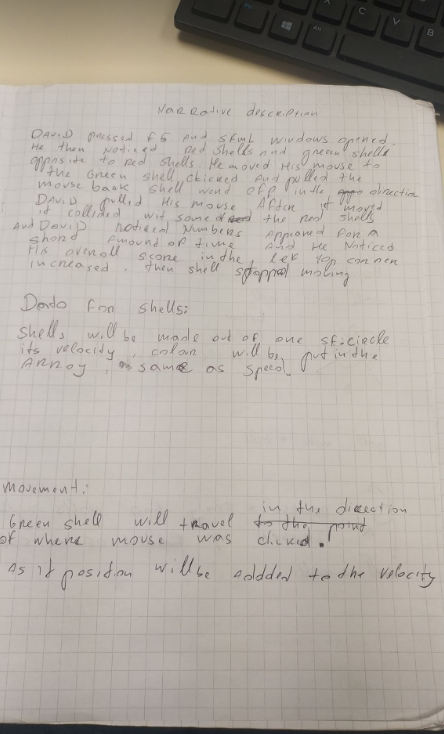 Narrative description
DAVID pressed F5 and SFML windows opened.
He then noticed red shells and green shells
opposite to red shells. He moved His mouse to
the Green shell, clicked and pulled the
mouse back shell wend off in the direction
DAVID pulled His mouse After it moved
it collided wit some the red shells
And DAVID noticed Numbers Appeared For A
short Amound of time And He Noticed
His overall score in the lef top corner
increased, then shell stopped moving
Data for shells:
Shells will be made out of one sf::circle
its velocity, colour will be put in the
Array, same as speed.
movement:
in the direction
Green shell will travel to the point
of where mouse was clicked.
As it position will be addded to the velocity